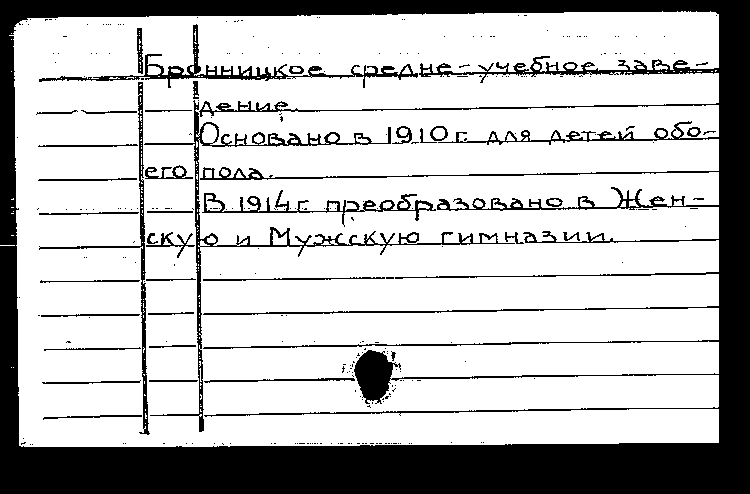 Бронницкое средне-учебное заве-
дение.
Основано в 1910 г. для детей обо-
его пола.
В 1914 г. преобразовано в Жен-
скую и Мужскую гимназии.